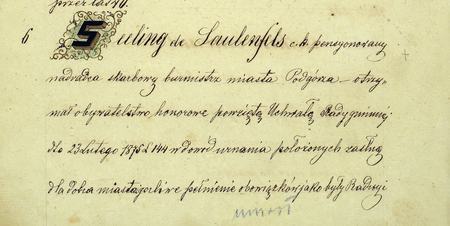 przez lat 40.
6 Seeling de Saulenfels c. k. pensyonowany
nadradca skarbowy burmistrz miasta Podgórza – otrzy-
mał obywatelstwo honorowe powziętą Uchwałą Rady gminnej
dto 23 Lutego 1875 L 144 w dowód uznania położonych zasług
dla dobra miasta gorliwe pełnienie obowiązków jako były Radzcy
umarł